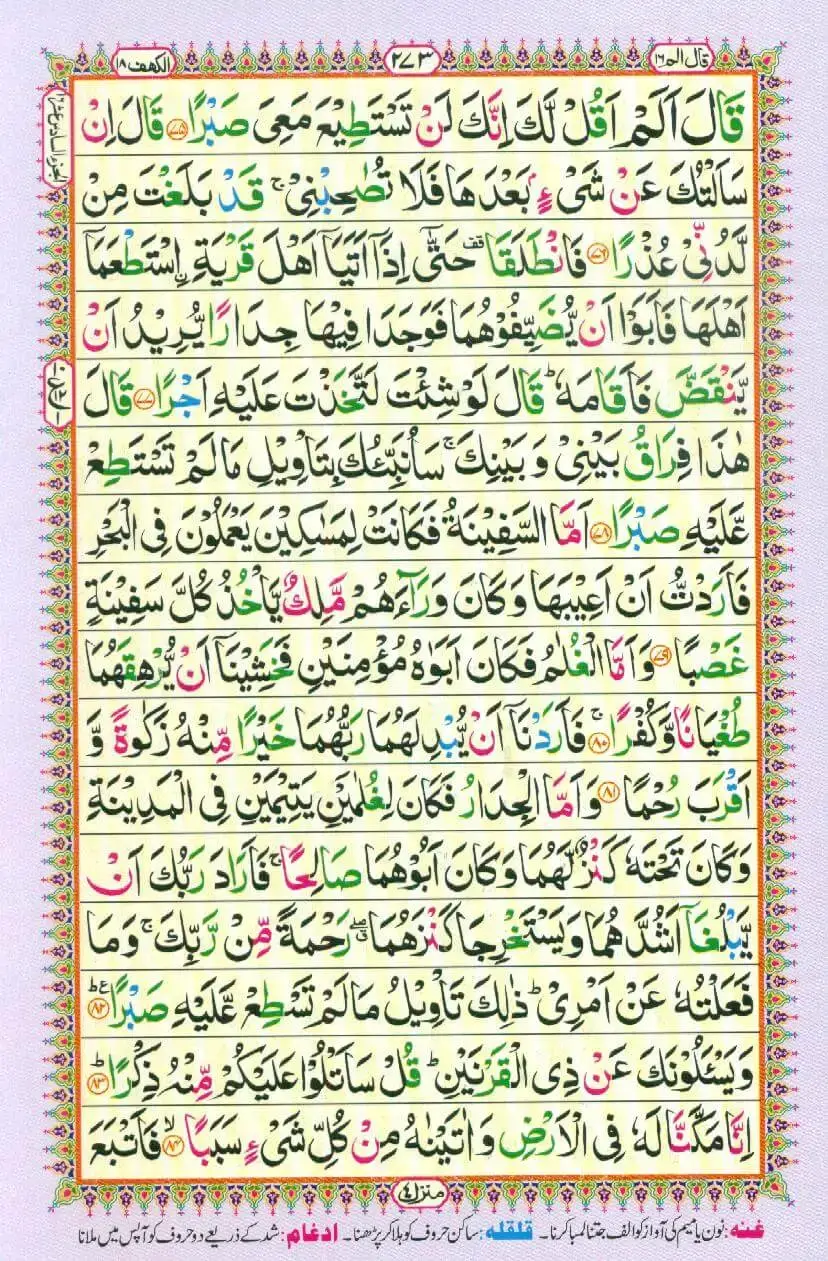 قال الم ١٦
٢٧٣
الكهف ١٨
قَالَ اَلَمْ اَقُلْ لَّكَ اِنَّكَ لَنْ تَسْتَطِيْعَ مَعِيَ صَبْرًا ﴿٧٥﴾ قَالَ اِنْ
سَاَلْتُكَ عَنْ شَيْءٍۭ بَعْدَهَا فَلَا تُصٰحِبْنِيْ ۚ قَدْ بَلَغْتَ مِنْ
لَّدُنِّيْ عُذْرًا ﴿٧٦﴾ فَانْطَلَقَا ۥ حَتّٰۤى اِذَاۤ اَتَيَاۤ اَهْلَ قَرْيَةِ ۨاسْتَطْعَمَاۤ
اَهْلَهَا فَاَبَوْا اَنْ يُّضَيِّفُوْهُمَا فَوَجَدَا فِيْهَا جِدَارًا يُّرِيْدُ اَنْ
يَّنْقَضَّ فَاَقَامَهٗ ؕ قَالَ لَوْ شِئْتَ لَتَّخَذْتَ عَلَيْهِ اَجْرًا ﴿٧٧﴾ قَالَ
هٰذَا فِرَاقُ بَيْنِيْ وَ بَيْنِكَ ۚ سَاُنَبِّئُكَ بِتَاْوِيْلِ مَا لَمْ تَسْتَطِعْ
عَّلَيْهِ صَبْرًا ﴿٧٨﴾ اَمَّا السَّفِيْنَةُ فَكَانَتْ لِمَسٰكِيْنَ يَعْمَلُوْنَ فِي الْبَحْرِ
فَاَرَدْتُّ اَنْ اَعِيْبَهَا وَكَانَ وَرَآءَهُمْ مَّلِكٌ يَّاْخُذُ كُلَّ سَفِيْنَةٍ
غَصْبًا ﴿٧٩﴾ وَاَمَّا الْغُلٰمُ فَكَانَ اَبَوٰهُ مُؤْمِنَيْنِ فَخَشِيْنَاۤ اَنْ يُّرْهِقَهُمَا
طُغْيَانًا وَّكُفْرًا ﴿٨٠﴾ۚ فَاَرَدْنَاۤ اَنْ يُّبْدِلَهُمَا رَبُّهُمَا خَيْرًا مِّنْهُ زَكٰوةً وَّ
اَقْرَبَ رُحْمًا ﴿٨١﴾ وَاَمَّا الْجِدَارُ فَكَانَ لِغُلٰمَيْنِ يَتِيْمَيْنِ فِي الْمَدِيْنَةِ
وَكَانَ تَحْتَهٗ كَنْزٌ لَّهُمَا وَكَانَ اَبُوْهُمَا صَالِحًا ۚ فَاَرَادَ رَبُّكَ اَنْ
يَّبْلُغَاۤ اَشُدَّهُمَا وَيَسْتَخْرِجَا كَنْزَهُمَا ۖ رَحْمَةً مِّنْ رَّبِّكَ ۚ وَمَا
فَعَلْتُهٗ عَنْ اَمْرِيْ ؕ ذٰلِكَ تَاْوِيْلُ مَا لَمْ تَسْطِعْ عَّلَيْهِ صَبْرًا ﴿٨٢﴾ؕ
وَيَسْـَٔلُوْنَكَ عَنْ ذِي الْقَرْنَيْنِ ؕ قُلْ سَاَتْلُوْا عَلَيْكُمْ مِّنْهُ ذِكْرًا ﴿٨٣﴾ؕ
اِنَّا مَكَّنَّا لَهٗ فِي الْاَرْضِ وَاٰتَيْنٰهُ مِنْ كُلِّ شَيْءٍ سَبَبًا ﴿٨٤﴾ۙ فَاَتْبَعَ
منزل ٤
غنه: نون یا میم کی آواز کو الف جتنا لمبا کرنا۔ قلقله: ساکن حروف کو ہلا کر پڑھنا۔ ادغام: شد کے ذریعے دو حروف کو آپس میں ملانا